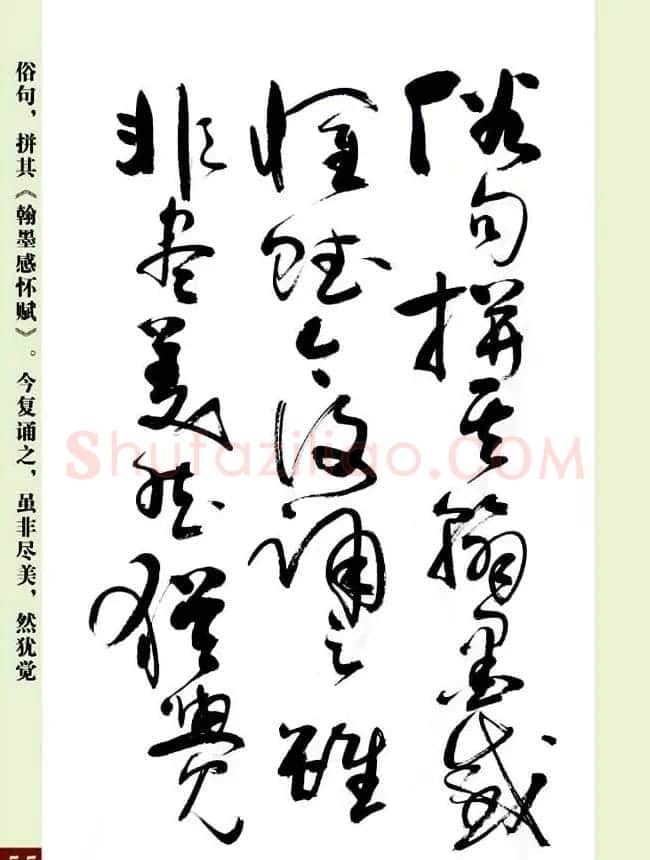 俗句拼其翰墨感
怀赋今复诵之虽
非尽美然犹觉
俗句，拼其《翰墨感怀赋》。今复诵之，虽非尽美，然犹觉
Shufaziliao.COM
55